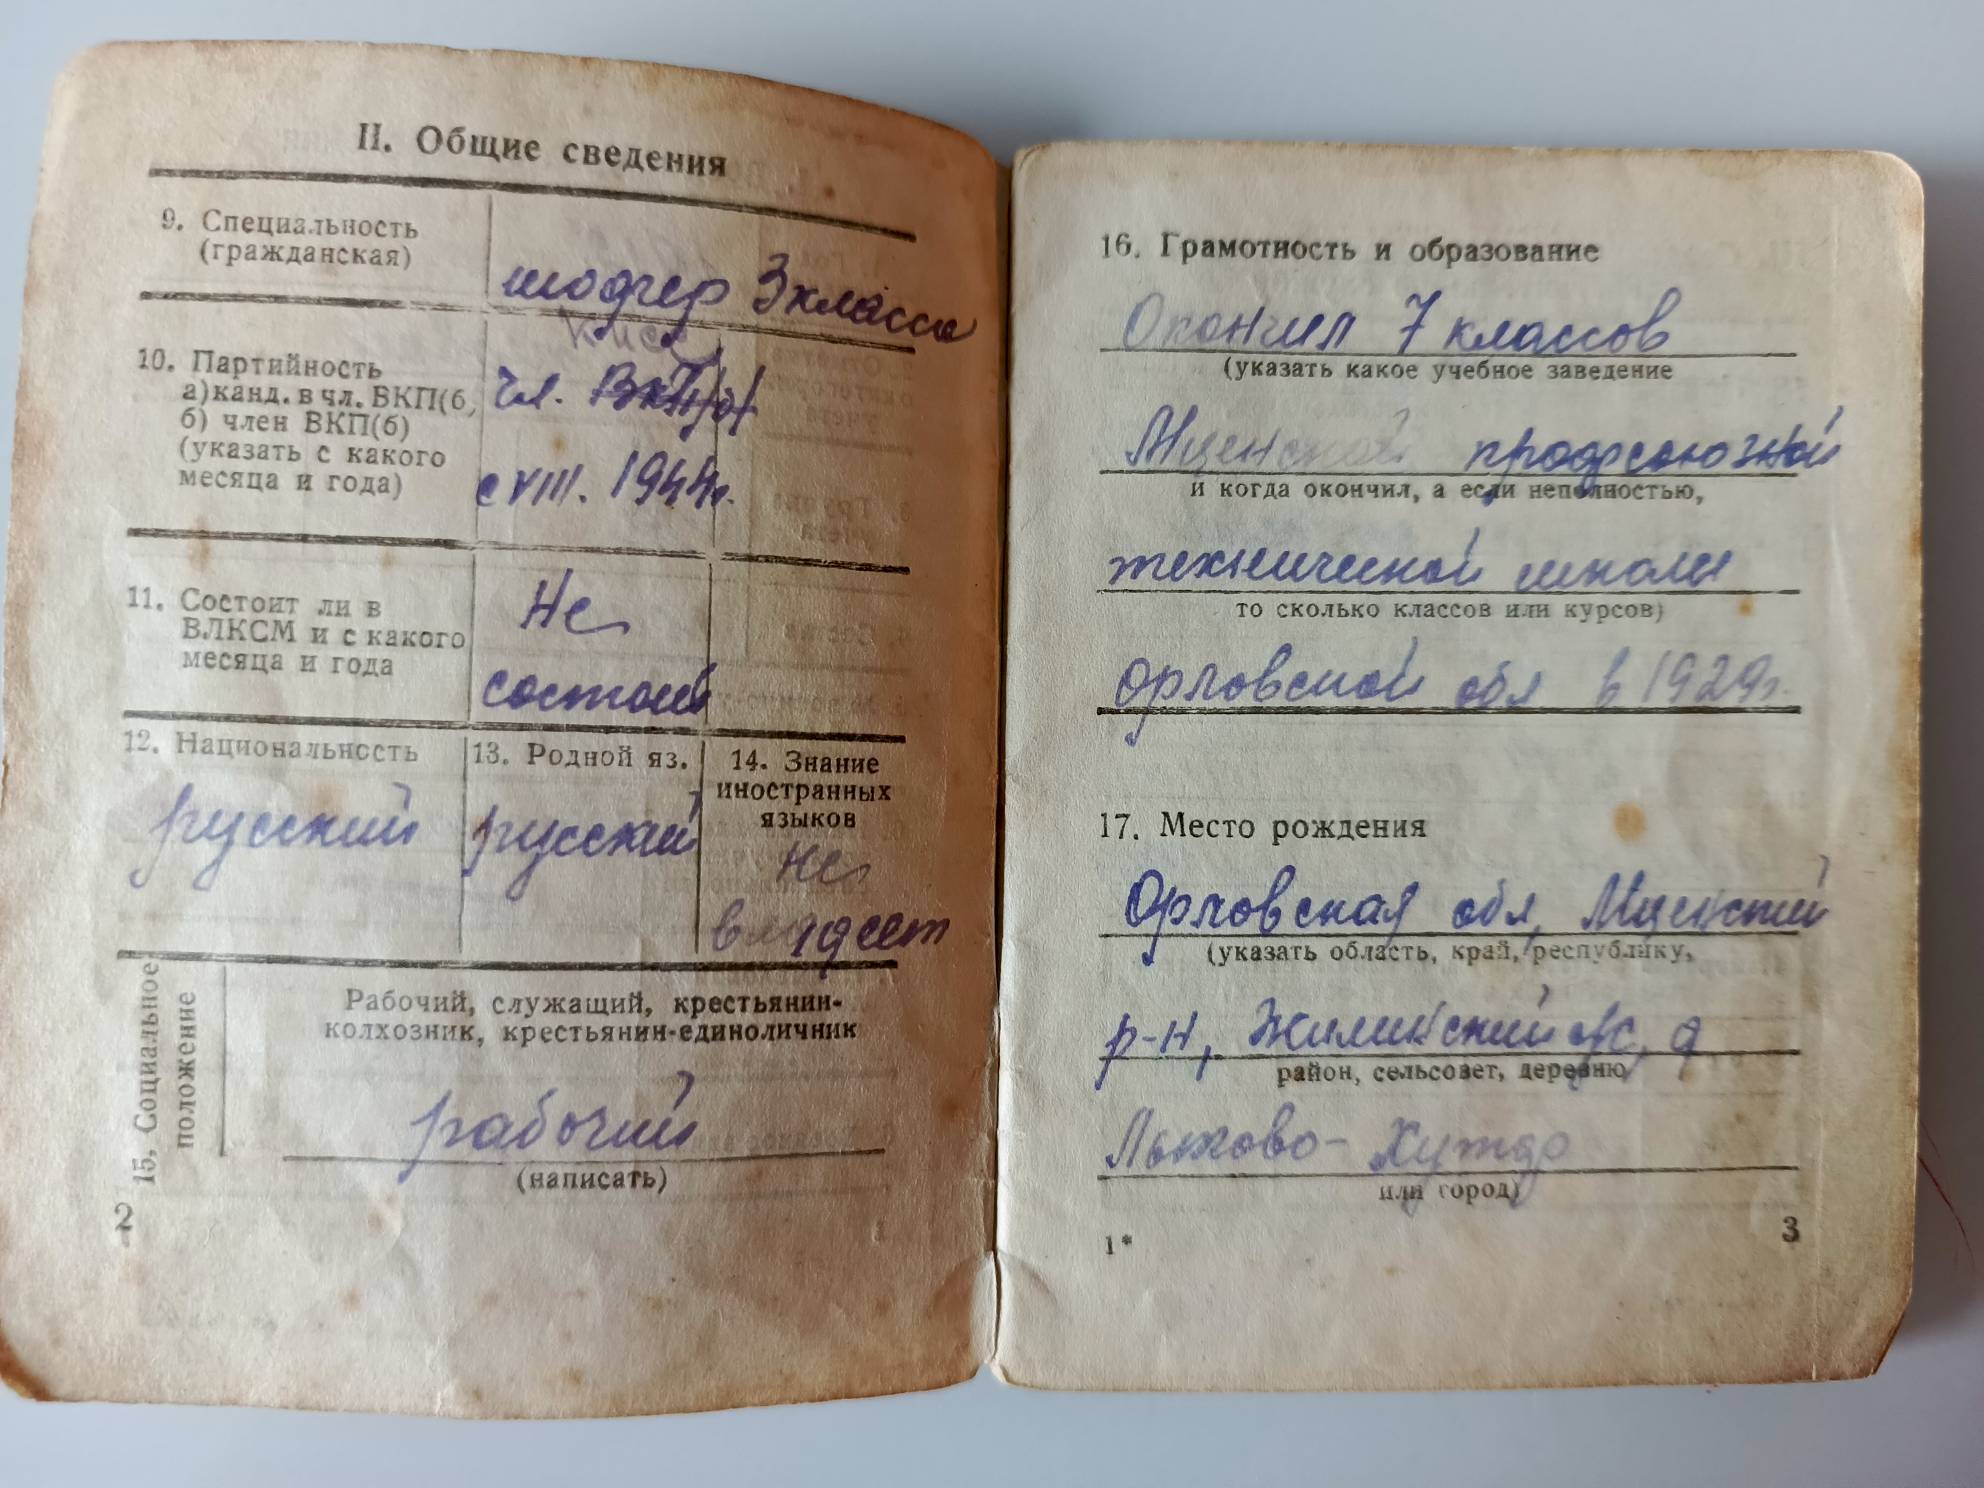 II. Общие сведения
9. Специальность
(гражданская)
шофер 3 класса
10. Партийность
а) канд. в чл. ВКП(б,
б) член ВКП(б)
(указать с какого
месяца и года)
КПСС
чл. ВКП(б)
с VIII. 1944г.
11. Состоит ли в
ВЛКСМ и с какого
месяца и года
Не
состоит
12. Национальность
русский
13. Родной яз.
русский
14. Знание
иностранных
языков
не
владеет
15. Социальное
положение
Рабочий, служащий, крестьянин-
колхозник, крестьянин-единоличник
рабочий
(написать)
2
16. Грамотность и образование
Окончил 7 классов
(указать какое учебное заведение
Мценской профсоюзной
и когда окончил, а если неполностью,
технической школы
то сколько классов или курсов)
орловской обл в 1929г.
17. Место рождения
Орловская обл, Мценский
(указать область, край, республику,
р-н, Жилинский с/с, д
район, сельсовет, деревню
Лыково- Хутор
или город)
1*
3